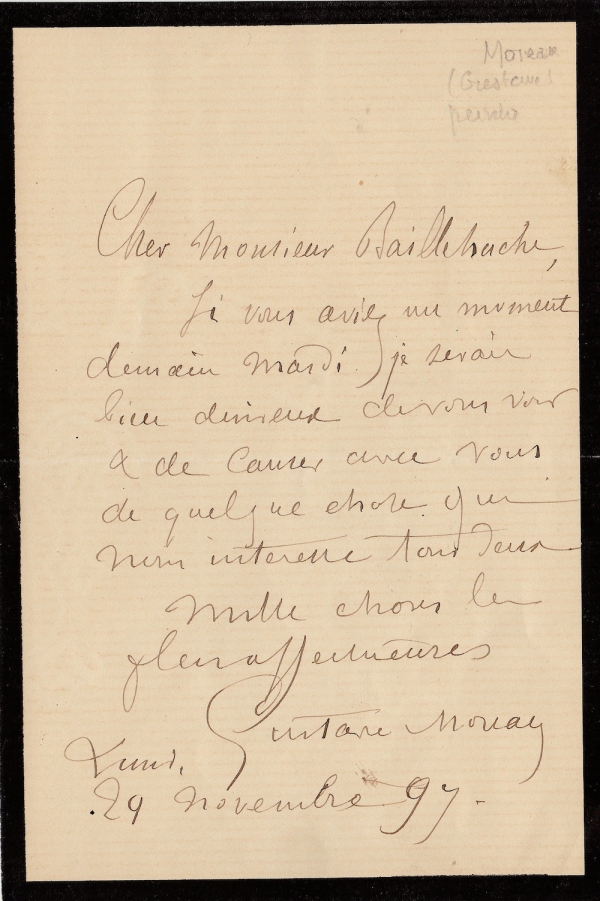 Moreau
(Gustave)
peintre
Cher Monsieur Baillehache,
Si vous aviez un moment
demain mardi je serais
bien désireux de vous voir
& de causer avec vous
de quelque chose qui
nous interesse tous deux
Mille choses les
plus affectueuses
Gustave Moreau
Lundi,
29 novembre 97.